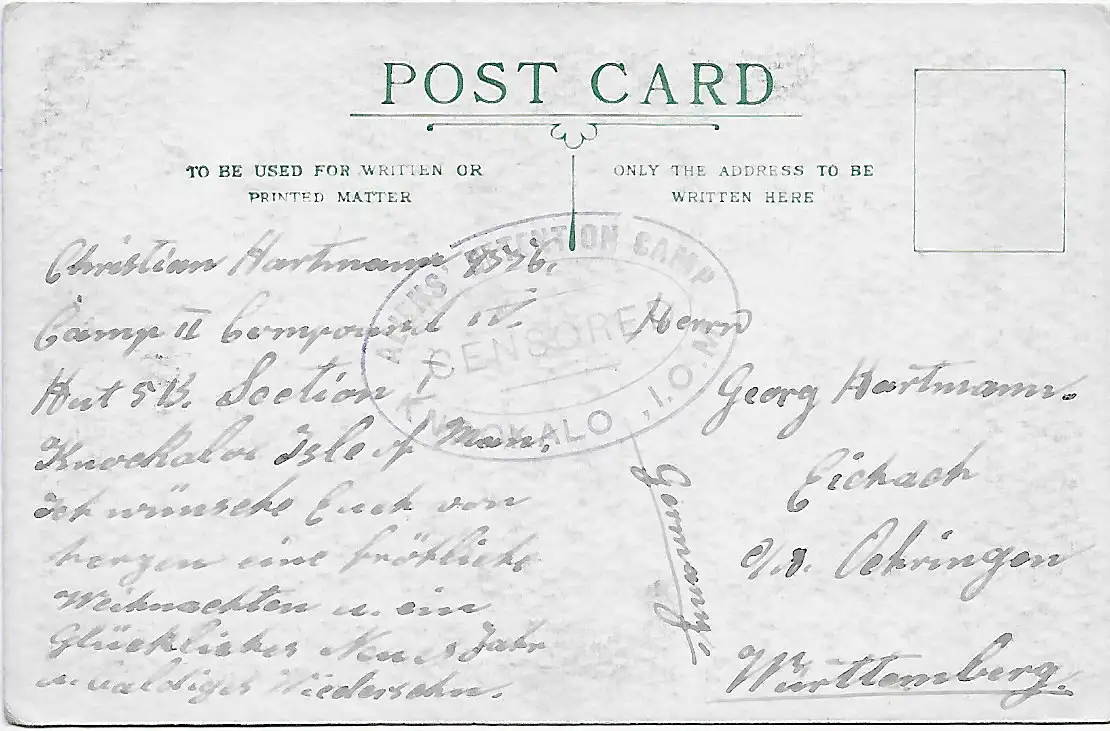 POST CARD
TO BE USED FOR WRITTEN OR
PRINTED MATTER
ONLY THE ADDRESS TO BE
WRITTEN HERE
ALIENS' DETENTION CAMP
CENSORED
KNOCKALOE, I.O.M.
Christian Hartmann
Camp II Compound IV.
Hut 5B. Section
Knockaloe Isle of Man,
Ich wünsche Euch von
herzen eine fröhliche
Weihnachten u. ein
Glückliches Neues Jahr
u. baldiges Wiedersehn.
Herrn
Georg Hartmann.
Eichach
Oehringen
Württemberg.
Germany.